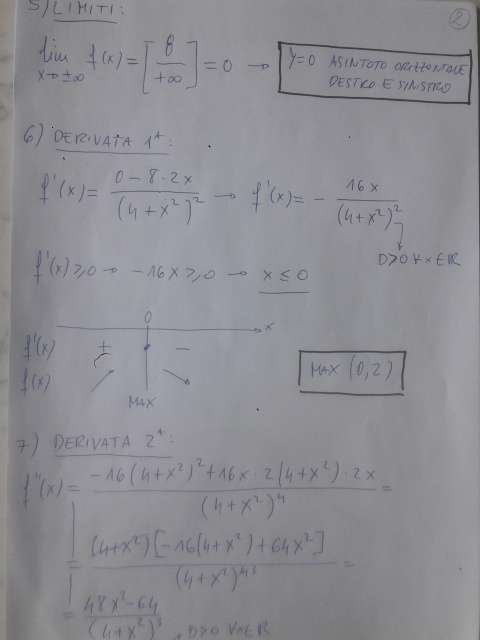 5) LIMITI:
2
lim f(x) = [8 / +∞] = 0 → Y=0 ASINTOTO ORIZZONTALE
x→±∞
DESTRO E SINISTRO
6) DERIVATA 1ª:
f'(x) = (0 - 8·2x) / (4+x²)² → f'(x) = - 16x / (4+x²)²
D>0 ∀x∈ℝ
f'(x) ≥ 0 → -16x ≥ 0 → x ≤ 0
0
x
f'(x) + -
f(x)
MAX
MAX (0,2)
7) DERIVATA 2ª:
f''(x) = (-16(4+x²)² + 16x·2(4+x²)·2x) / (4+x²)⁴ =
= (4+x²)[-16(4+x²)+64x²] / (4+x²)⁴³ =
= (48x²-64) / (4+x²)³, D>0 ∀x∈ℝ